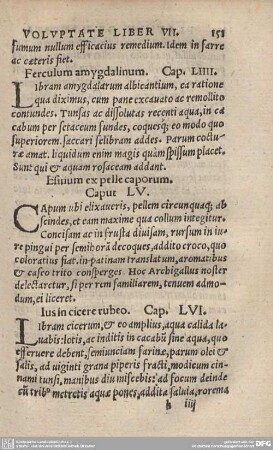 VOLVPTATE LIBER VII. 151
sumum nullum efficacius remedium. Idem in farre
ac cæteris fiet.
Ferculum amygdalinum. Cap. LIIII.
LIbram amygdalarum albicantium, ea ratione
qua diximus, cum pane excauato ac remollito
contundes. Tunsas ac dissolutas recenti aqua, in ca
cabum per setaceum fundes, coquesq; eo modo quo
superiorem. saccari selibram addes. Parum coctu-
ræ amat. liquidum enim magis quàm spissum placet.
Sunt qui & aquam rosaceam addant.
Esicium ex pelle caporum.
Caput LV.
CApum ubi elixaueris, pellem circunquaq; ab
scindes, et eam maxime qua collum integitur.
Concisam ac in frusta diuisam, rursum in iu
re pingui per semihorā decoques, addito croco, quo
coloratius fiat. in patinam translatum, aromatibus
& caseo trito consperges Hoc Archigallus noster
delectaretur, si per rem familiarem, tenuem admo-
dum, ei liceret.
Ius in cicere rubeo. Cap. LVI.
LIbram cicerum, & eo amplius, aqua calida la
uabis: lotis, ac inditis in cacabū sine aqua, quo
efferuere debent, semiunciam farinæ, parum olei &
salis, ad uiginti grana piperis fracti, modicum cin-
nami tunsi, manibus diu miscebis: ad focum deinde
cū trib⁹ metretis aquæ pones, addita saluia, rorema
h iiij